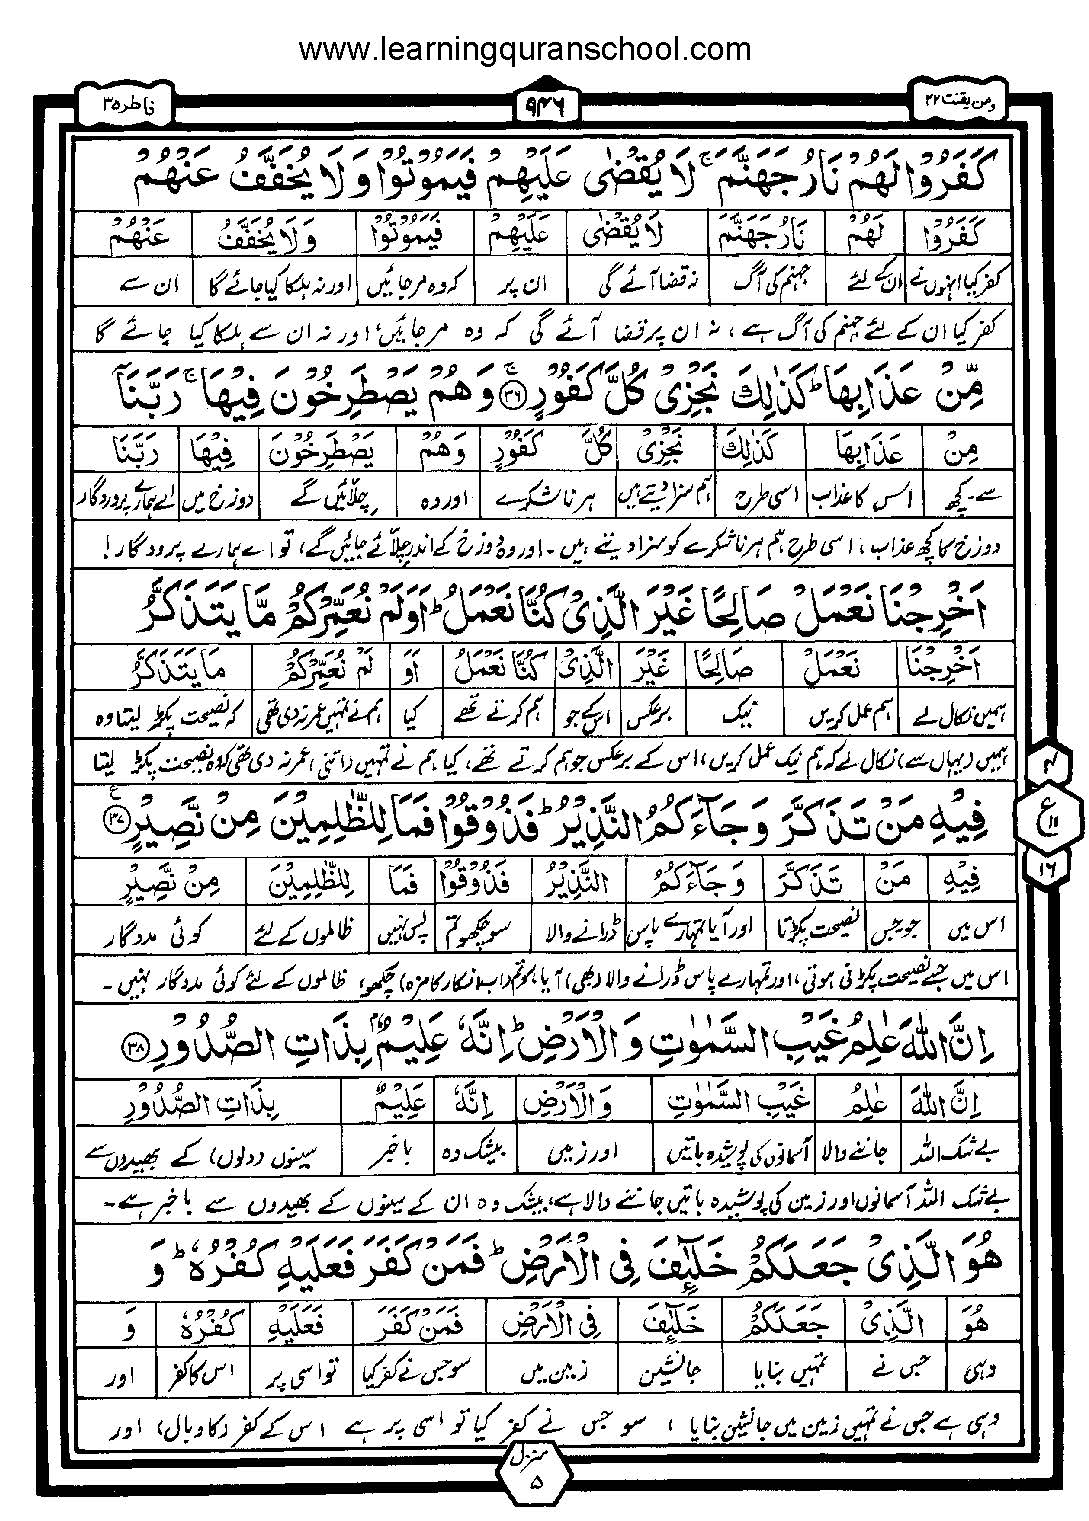 www.learningquranschool.com
ومن یقنت ۲۲
۹۴۶
فاطر ۳۵
كَفَرُوْا لَهُمْ نَارُ جَهَنَّمَ ۚ لَا يُقْضٰى عَلَيْهِمْ فَيَمُوْتُوْا وَلَا يُخَفَّفُ عَنْهُمْ
كَفَرُوْا لَهُمْ نَارُ جَهَنَّمَ لَا يُقْضٰى عَلَيْهِمْ فَيَمُوْتُوْا وَلَا يُخَفَّفُ عَنْهُمْ
کفر کیا انہوں نے ان کے لئے جہنم کی آگ نہ قضا آئے گی ان پر کہ وہ مر جائیں اور نہ ہلکا کیا جائے گا ان سے
کفر کیا ان کے لئے جہنم کی آگ ہے، نہ ان پر قضا آئے گی کہ وہ مر جائیں اور نہ ان سے ہلکا کیا جائے گا
مِّنْ عَذَابِهَا ؕ كَذٰلِكَ نَجْزِىْ كُلَّ كَفُوْرٍ ۚ ﴿۳۶﴾ وَهُمْ يَصْطَرِخُوْنَ فِيْهَا ۚ رَبَّنَاۤ
مِنْ عَذَابِهَا كَذٰلِكَ نَجْزِىْ كُلَّ كَفُوْرٍ وَهُمْ يَصْطَرِخُوْنَ فِيْهَا رَبَّنَا
سے۔ کچھ اس کا عذاب اسی طرح ہم سزا دیتے ہیں ہر ناشکرے اور وہ چلائیں گے دوزخ میں اے ہمارے پروردگار
دوزخ کا کچھ عذاب، اسی طرح ہم ہر ناشکرے کو سزا دیتے ہیں۔ اور وہ دوزخ کے اندر چلّائے جائیں گے، تو اے ہمارے پروردگار!
اَخْرِجْنَا نَعْمَلْ صَالِحًا غَيْرَ الَّذِىْ كُنَّا نَعْمَلُ ؕ اَوَلَمْ نُعَمِّرْكُمْ مَّا يَتَذَكَّرُ
اَخْرِجْنَا نَعْمَلْ صَالِحًا غَيْرَ الَّذِىْ كُنَّا نَعْمَلُ اَوَ لَمْ نُعَمِّرْكُمْ مَا يَتَذَكَّرُ
ہمیں نکال لے ہم عمل کریں نیک برعکس اس کے جو ہم کرتے تھے کیا ہم نے نہیں عمر نہ دی تھی کہ نصیحت پکڑ لیتا وہ
ہمیں (یہاں سے) نکال لے کہ ہم نیک عمل کریں، اس کے برعکس جو ہم کرتے تھے، کیا ہم نے تمہیں (اتنی) عمر نہ دی تھی کہ نصیحت پکڑ لیتا
فِيْهِ مَنْ تَذَكَّرَ وَجَآءَكُمُ النَّذِيْرُ ؕ فَذُوْقُوْا فَمَا لِلظّٰلِمِيْنَ مِنْ نَّصِيْرٍ ﴿۳۷﴾ ع
فِيْهِ مَنْ تَذَكَّرَ وَجَآءَكُمُ النَّذِيْرُ فَذُوْقُوْا فَمَا لِلظّٰلِمِيْنَ مِنْ نَّصِيْرٍ
اس میں جو جس نصیحت پکڑتا اور آیا تمہارے پاس ڈرانے والا سو چکھو تم پس نہیں ظالموں کے لئے کوئی مددگار
اس میں جسے نصیحت پکڑنی ہوتی، اور تمہارے پاس ڈرانے والا (بھی) آیا، سو تم (اب انکار کا مزہ) چکھو، ظالموں کے لئے کوئی مددگار نہیں۔
۴
ع
۱۱
۱۶
اِنَّ اللّٰهَ عٰلِمُ غَيْبِ السَّمٰوٰتِ وَالْاَرْضِ ؕ اِنَّهٗ عَلِيْمٌۢ بِذَاتِ الصُّدُوْرِ ﴿۳۸﴾
اِنَّ اللّٰهَ عٰلِمُ غَيْبِ السَّمٰوٰتِ وَالْاَرْضِ اِنَّهٗ عَلِيْمٌ بِذَاتِ الصُّدُوْرِ
بے شک اللہ جاننے والا آسمانوں کی پوشیدہ باتیں اور زمین بیشک وہ باخبر سینوں (دلوں) کے بھیدوں سے
بے شک اللہ آسمانوں اور زمین کی پوشیدہ باتیں جاننے والا ہے، بیشک وہ ان کے سینوں کے بھیدوں سے باخبر ہے۔
هُوَ الَّذِىْ جَعَلَكُمْ خَلٰٓئِفَ فِى الْاَرْضِ ؕ فَمَنْ كَفَرَ فَعَلَيْهِ كُفْرُهٗ ؕ وَ
هُوَ الَّذِىْ جَعَلَكُمْ خَلٰٓئِفَ فِى الْاَرْضِ فَمَنْ كَفَرَ فَعَلَيْهِ كُفْرُهٗ وَ
وہی جس نے تمہیں بنایا جانشین زمین میں سو جس نے کفر کیا تو اسی پر اس کا کفر اور
وہی ہے جس نے تمہیں زمین میں جانشین بنایا، سو جس نے کفر کیا تو اسی پر ہے اس کے کفر (کا وبال) اور
منزل ۵